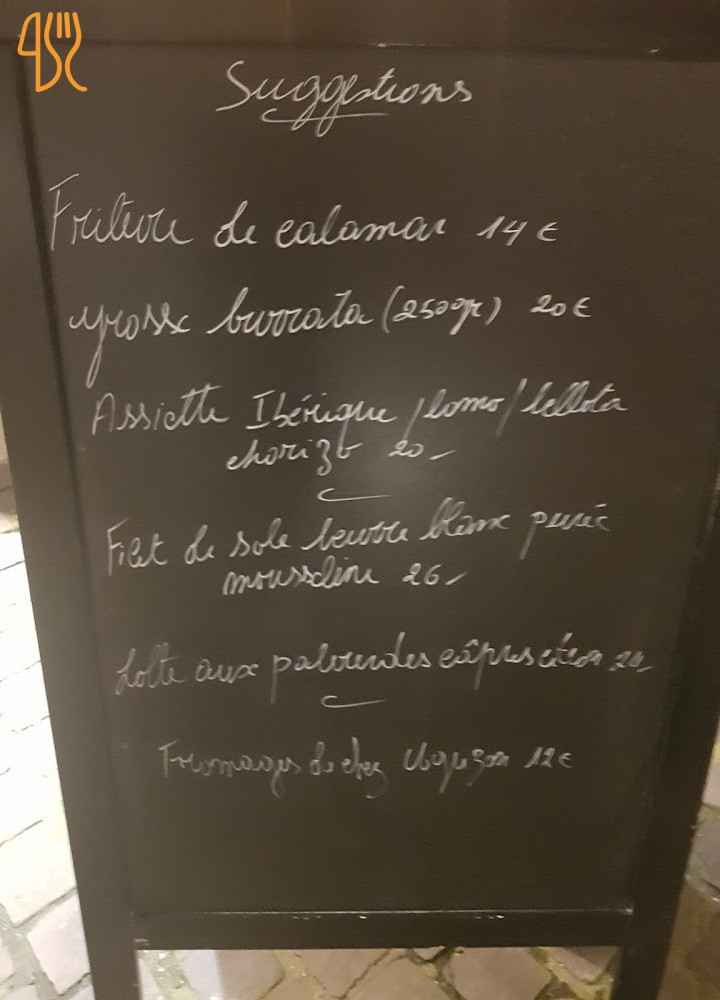 Suggestions
Friture de calamar 14 €
grosse burrata (250gr) 20 €
Assiette Ibérique /lomo/bellota
chorizo 20 -
Filet de sole beurre blanc purée
mousseline 26 -
Lotte aux palourdes câpres citron
Fromages de chez 12 €